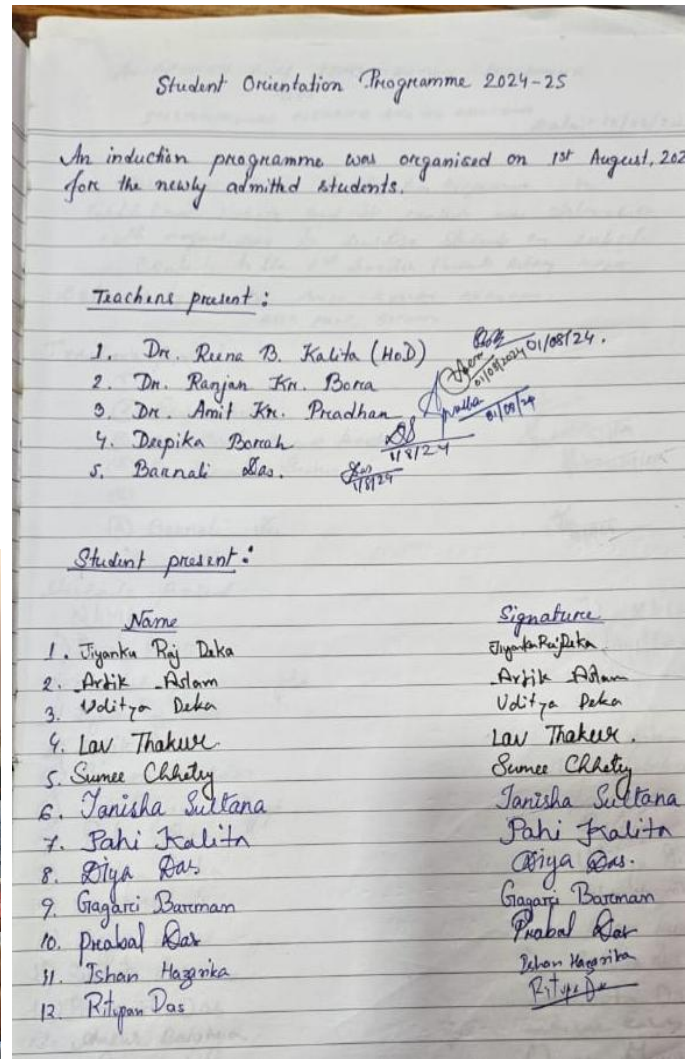 Student Orientation Programme 2024-25
An induction programme was organised on 1st August, 202
for the newly admitted students.
Teachers present:
1. Dr. Reena B. Kalita (HoD) 01/08/24.
2. Dr. Ranjan Kr. Bora 01/08/2024
3. Dr. Amit Kr. Pradhan 01/08/24
4. Deepika Borah 1/8/24
5. Barnali Das. Das 1/8/24
Student present:
Name Signature
1. Jiyanku Raj Deka Jiyanku Raj Deka
2. Artik Aslam Artik Aslam
3. Uditya Deka Uditya Deka
4. Lav Thakur. Lav Thakur.
5. Sumee Chhetry Sumee Chhetry
6. Tanisha Sultana Tanisha Sultana
7. Pahi Kalita Pahi Kalita
8. Diya Das Diya Das.
9. Gagarci Barman Gagarci Barman
10. Prabal Das Prabal Das
11. Ishan Hazarika Ishan Hazarika
12. Ritupan Das